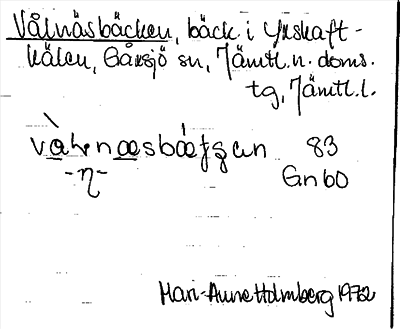 Vålnäsbäcken, bäck i Yxskaft-
kälen, Gåxsjö sn, Jämtl. n. doms.
tg, Jämtl. l.
83
-η- Gn 60
Mari-Anne Holmberg 1972